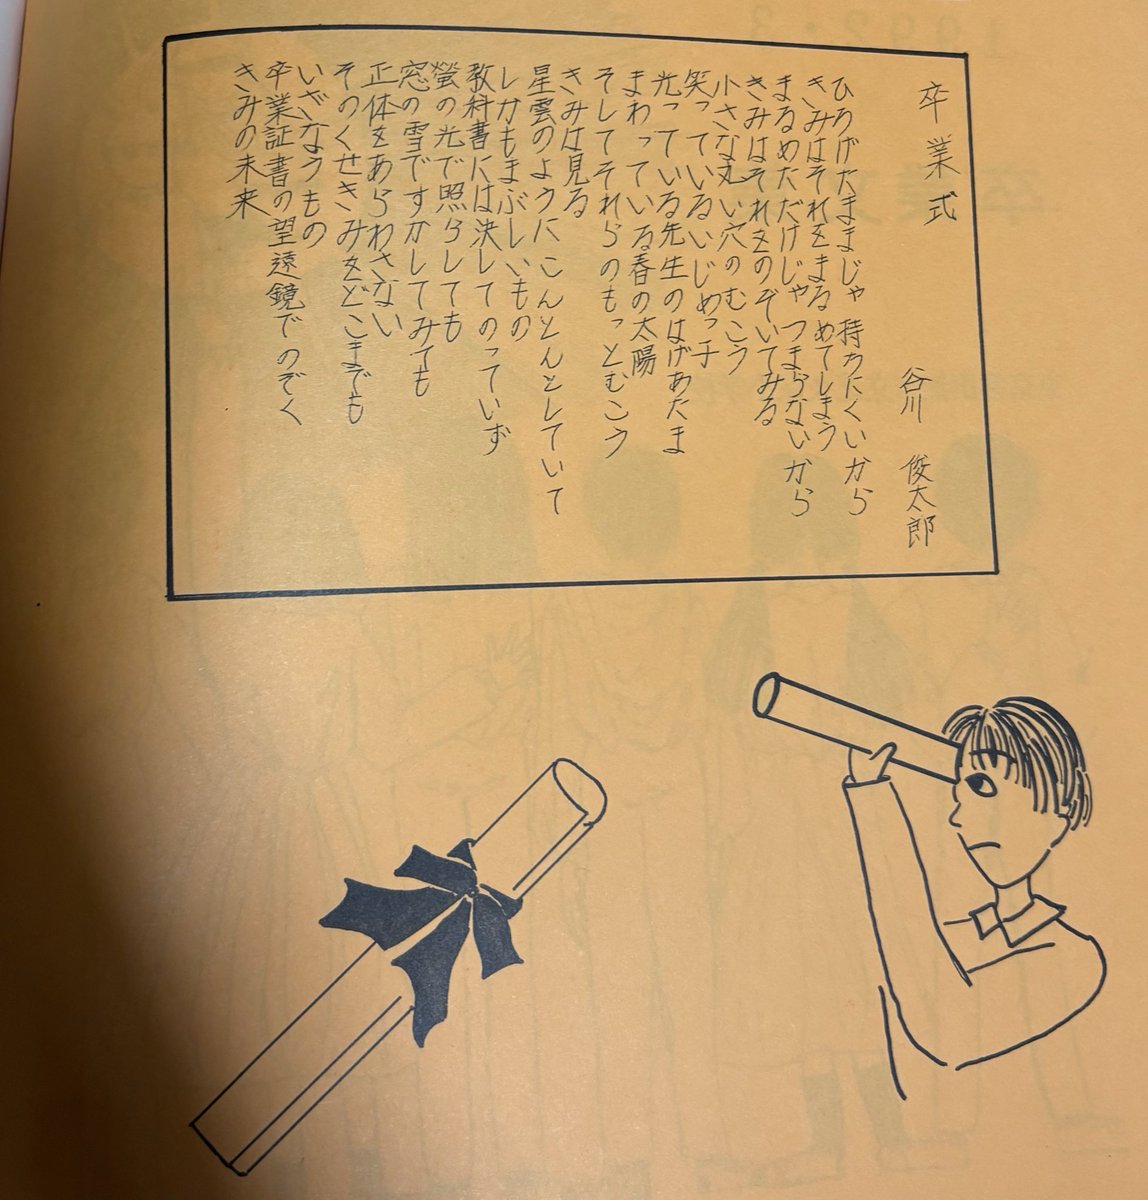 卒業式
谷川 俊太郎
ひろげたままじゃ 持ちにくいから
きみはそれをまるめてしまう
まるめただけじゃ つまらないから
きみはそれをのぞいてみる
小さな丸い穴のむこう
笑っているいじめっ子
光っている先生のはげあたま
まわっている春の太陽
そしてそれらのもっとむこう
きみは見る
星雲のようにこんとんとしていて
しかもまぶしいもの
教科書には決してのっていず
螢の光で照らしても
窓の雪ですかしてみても
正体をあらわさない
そのくせきみをどこまでも
いざなうもの
卒業証書の望遠鏡でのぞく
きみの未来